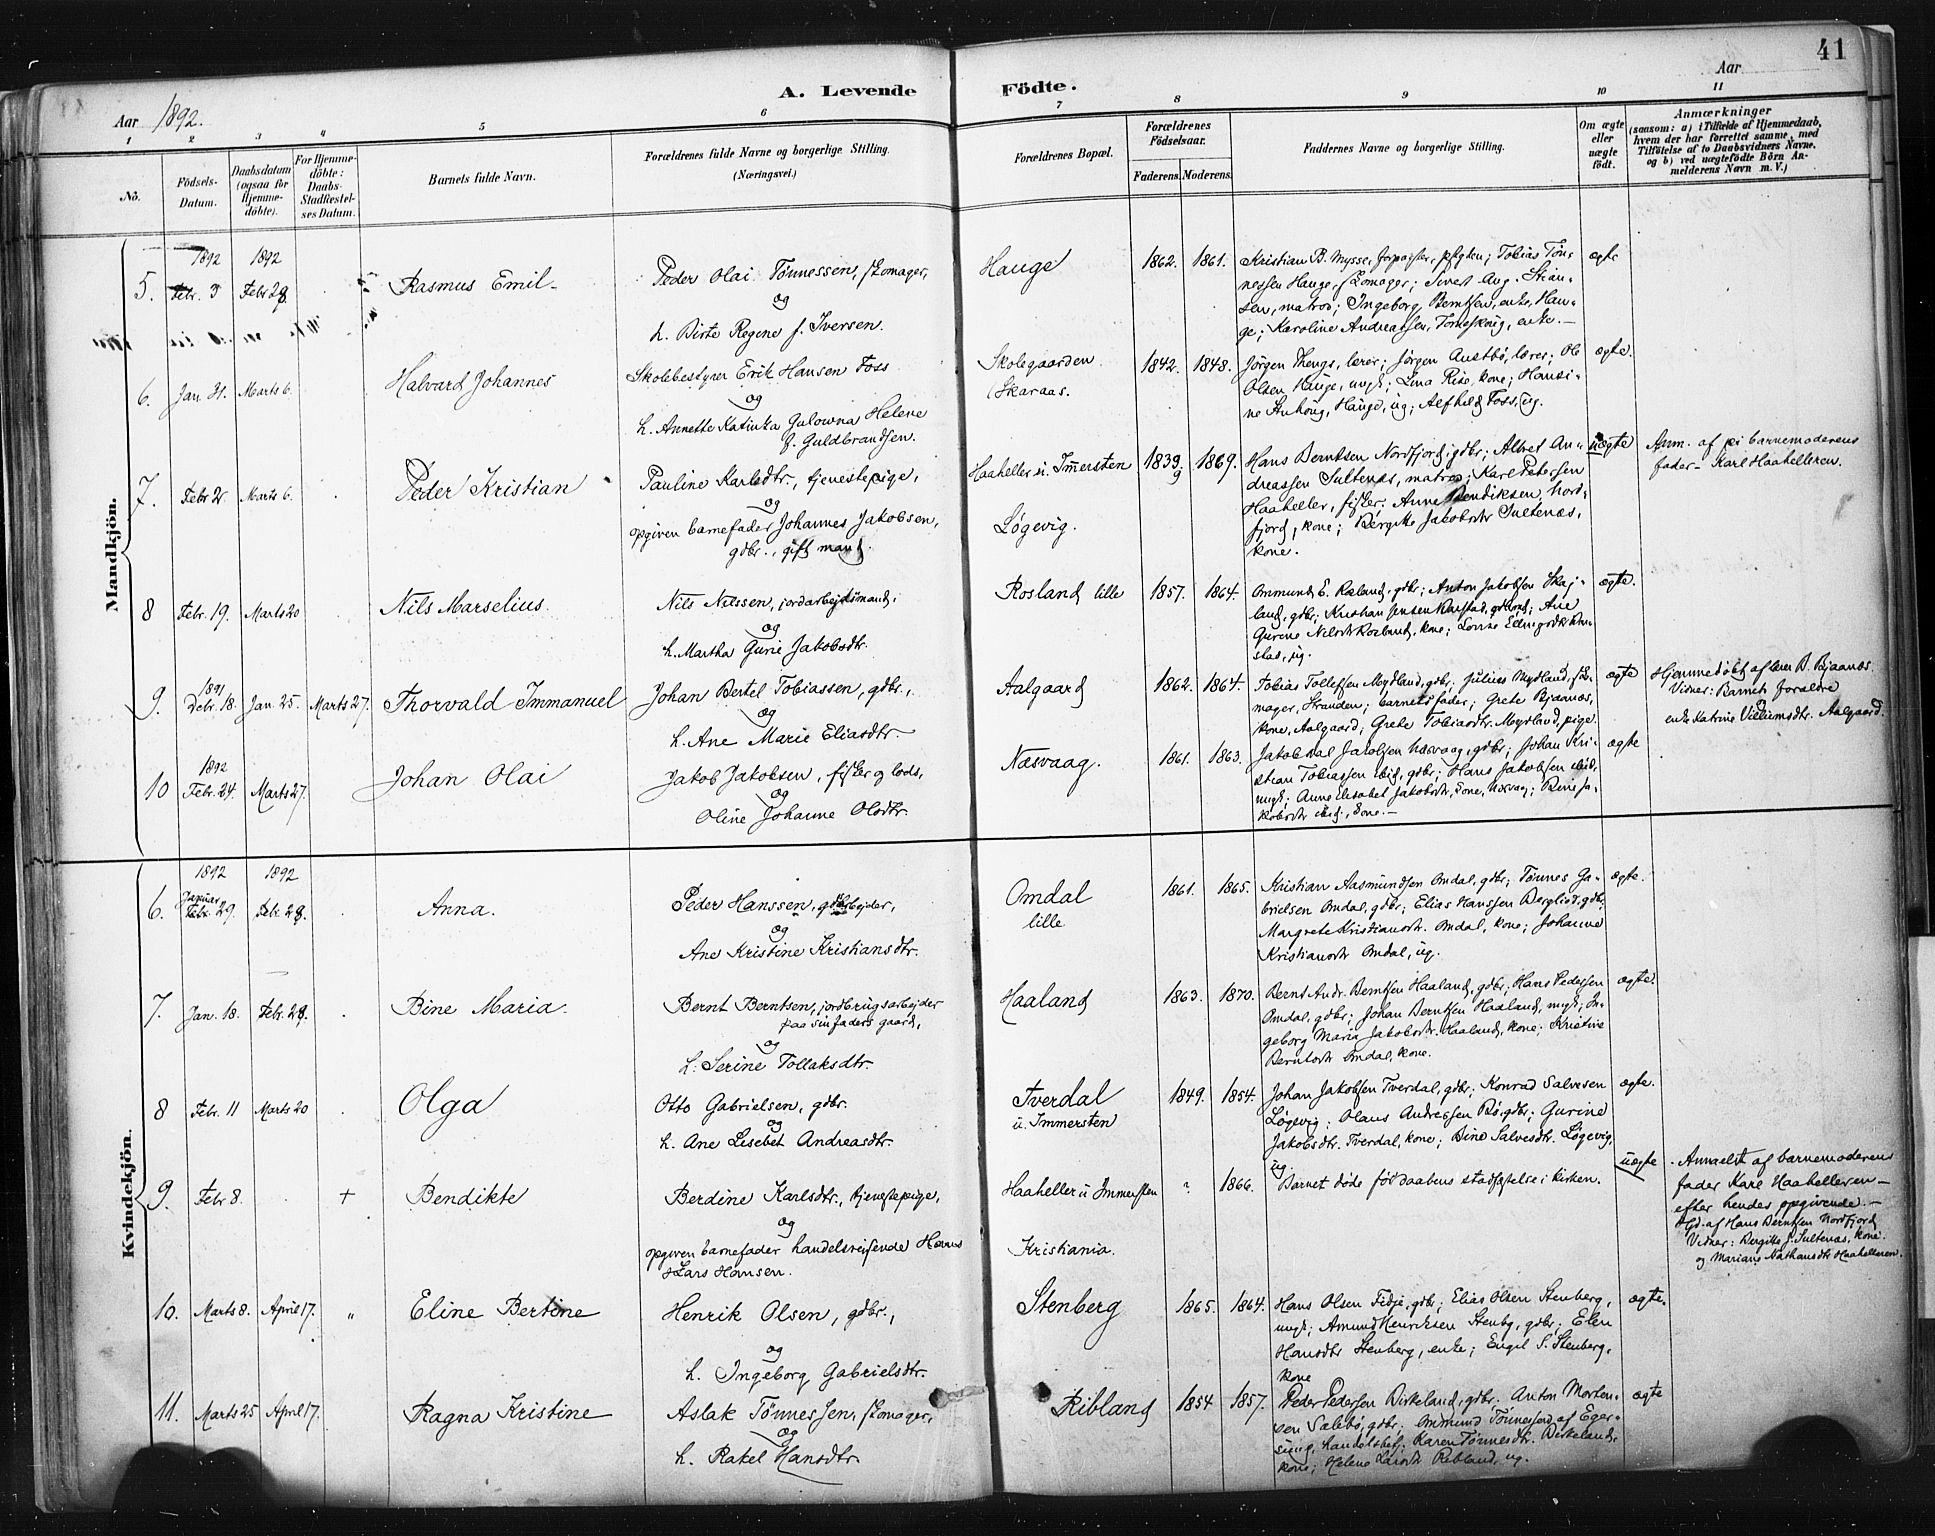 41
Aar 1892.
A. Levende Födte.
Aar
1 2 3 4 5 6 7 8 9 10 11
No.
Födsels-
Datum.
Daabsdatum
(ogsaa for
Hjemme-
döbte).
For Hjemme-
döbte:
Daabs-
Stadfæstel-
ses Datum.
Barnets fulde Navn.
Forældrenes fulde Navne og borgerlige Stilling.
(Næringsvei.)
Forældrenes Bopæl.
Forældrenes
Födselsaar.
Faderens. Moderens.
Faddernes Navne og borgerlige Stilling.
Om ægte
eller
uægte
födt.
Anmærkninger
(saasom: a) i Tilfælde af Hjemmedaab,
hvem der har forrettet samme, med
Tilföielse af to Daabsvidners Navne,
og b) ved uægtefödte Börn An-
melderens Navn m. V.)
Mandkjön.
1892 1892
5. Febr. 3 Febr 28. Rasmus Emil
Peder Olai Tönnessen, skomager,
og
h. Birte Regine f. Iversen.
Hauge 1862. 1861.
Kristian B. Mysse, forpagter, pstgden; Tobias Tön-
nessen Hauge, skomager; Sivert Aug. Stran-
sen, matros; Ingeborg Berntsen, enke, Hau-
ge; Karoline Andreassen, Torneskoug, enke. —
ægte
6. Jan. 31. Marts 6. Halvard Johannes
Skolebestyrer Erik Hansen Foss
og
h. Annette Katinka Gulowna Helene
f. Guldbrandsen.
Skolegaarden
(Skaraas.
1842. 1848.
Jörgen Thengs, lærer; Jörgen Austbö, lærer; Ole
Olsen Hauge, ungk.; Lina Rise, kone; Hansi-
ne Stuhoug, Hauge, ug; Alfhild Foss, ug.
ægte.
7. Febr 21. Marts 6. Peder Kristian
Pauline Karlsdtr., tjenestepige,
og
opgiven barnefader Johannes Jakobsen,
gdbr., gift mand.
Haaheller u. Immersten
Løgevig.
1839. 1869.
Hans Berntsen Nordfjord, gdbr; Albret An-
dreassen Sultenæs, matros; Karl Petersen
Haaheller, fisker; Anne Bendiksen, Nord-
fjord, kone; Bergitte Jakobsdtr Sultenæs,
kone.
uægte
Anm. af pi barnemoderens
fader — Karl Haahelleren.
8 Febr. 19. Marts 20 Nils Marselius.
Nils Nilssen, jordarbejdsmand,
og
h. Martha Gurie Jakobsdtr.
Rosland lille 1857. 1864.
Ommund E. Rosland, gdbr; Anton Jakobsen Skaj-
land, gdbr; Kristian Jensen gdbr; Ane
Gurine Nilsdtr Rosland, kone; Lovise Ellingsdtr
stad, ug.
ægte.
1891
9. Debr. 18. Jan. 25. Marts 27. Thorvald Immanuel
Johan Bertel Tobiassen, gdbr.,
og
h. Ane Marie Eliasdtr.
Aalgaard 1862. 1864.
Tobias Tollefsen Mydland, gdbr; Julius Mydland, sko-
mager, Stranden; barnets fader; Grete Bjaanæs,
kone, Aalgaard; Grete Tobiasdtr. Mydland, pige.
ægte
Hjemmedöbt af lærer B. Bjaanæs.
Vidner: Barnets forældre
enke Katrine Villumsdtr. Aalgaard.
1892
10 Febr. 24. Marts 27. Johan Olai
Jakob Jakobsen, fisker og lods,
og
Oline Johanne Olsdtr.
Næsvaag. 1861. 1863.
Jakob Jakobsen Næsvaag, gdbr; Johan Kri-
stian Tobiassen Ibid, gdbr; Hans Jakobsen ibid,
ungk; Anne Elisabet Jakobsdtr, kone, Næsvaag; Ja-
kobsdtr ibid., kone. —
ægte
Kvindekjön.
1892 1892
Januar
6. Febr. 29. Febr. 28. Anna.
Peder Hanssen, gdbr.
og
Ane Kristine Kristiansdtr.
Omdal
lille.
1861. 1865.
Kristian Aasmundsen Omdal, gdbr; Tönnes Ga-
brielsen Omdal, gdbr; Elias Hanssen Berglid, gdbr;
Margrete Kristiansdtr. Omdal, kone; Johanne
Kristiansdtr Omdal, ug.
ægte.
7. Jan. 18. Febr. 28. Bine Maria.
Bernt Berntsen, jordbrugsarbejder
paa sin faders gaard,
og
h. Serine Tollaksdtr.
Haaland 1863. 1870.
Bernt Andr. Berntsen Haaland, gdbr; Hans Pedersen
Omdal, gdbr; Johan Berntsen Haaland, ungk; In-
geborg Maria Jakobsdtr. Haaland, kone; Kristine
Berntsdtr Omdal, kone.
ægte.
8 Febr. 11 Marts 20 Olga
Otto Gabrielsen, gdbr.
og
h. Ane Lisebet Andreasdtr.
Tverdal
u. Immersten
1849. 1854.
Johan Jakobsen Tverdal, gdbr; Konrad Salvesen
Løgevig; Olaus Andreassen Bö, gdbr; Gurine
Jakobsdtr. Tverdal, kone; Bine Salvesdtr. Løgevig,
ug.
ægte.
9. Febr 8. + Bendikte
Berdine Karlsdtr., tjenestepige,
og
opgiven barnefader handelsreisende Hans
Lars Hansen.
Haaheller u Immersten
Kristiania.
? 1866.
Barnet døde før daabens stadfæstelse i kirken.
uægte
Anmeldt af barnemoderens
fader Karl Haahelleren —
efter hendes opgivende. —
Hjd. af Hans Berntsen Nordfjord
Vidner: Bergitte J. Sultenæs, kone.
og Mariane Nathansdtr Haahelleren.
10. Marts 8. April 17. „ Eline Bertine
Henrik Olsen, gdbr.,
og
h. Ingeborg Gabrielsdtr.
Stenberg 1865. 1864.
Hans Olsen Fidje, gdbr; Elias Olsen Stenberg,
ungk; Amund Henriksen Stenbg, gdbr; Elen
Hansdtr Stenberg, enke; Engel S. Stenberg,
kone
ægte.
11. Marts 25 April 17. Ragna Kristine
Aslak Tönnessen, skomager,
og
h. Rakel Hansdtr.
Ribland 1854 1857.
Peder Pedersen Birkeland, gdbr. Anton Morten-
sen Salebö, gdbr; Ommund Tönnessen af Eger-
sund, handelsbetj. Karen Tönnesdtr. Birkeland,
kone; Helene Larsdtr Ribland, ug.
ægte